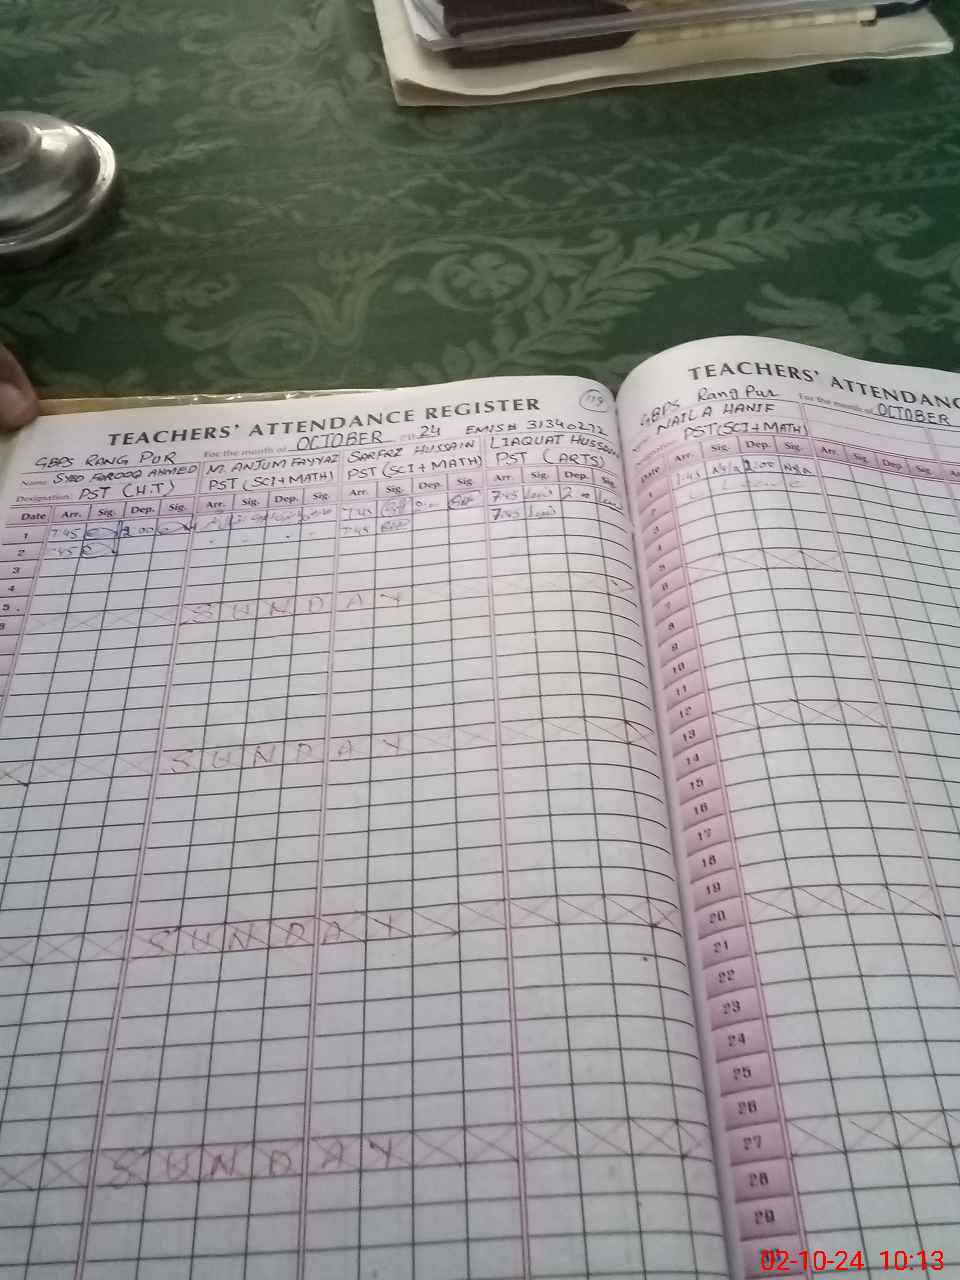 119
TEACHERS' ATTENDANCE REGISTER
For the month of OCTOBER 24 EMIS# 31340272
GBPS RANG PUR
Name SYED FAROOQ AHMED M. ANJUM FAYYAZ SARFRZ HUSSAIN LIAQUAT HUSSAIN
Designation: PST (H.T) PST (SCI+MATH) PST (SCI+MATH) PST (ARTS)
Date Arr. Sig. Dep. Sig. Arr. Sig. Dep. Sig. Arr. Sig. Dep. Sig. Arr. Sig. Dep. Sig.
1 7:45 2.00 7:45 7:45 2:00
2 7:45 7:45 7:45
3
4
5
6
SUNDAY
SUNDAY
SUNDAY
SUNDAY
TEACHERS' ATTENDANC
GBPS Rang Pur For the month of OCTOBER
NAILA HANIF
Designation: PST(SCI+MATH)
Date Arr. Sig. Dep. Sig. Arr. Sig. Dep. Sig. Arr.
1 7:45 2:00
2
3
4
5
6
7
8
9
10
11
12
13
14
15
16
17
18
19
20
21
22
23
24
25
26
27
28
29
30
02-10-24 10:13